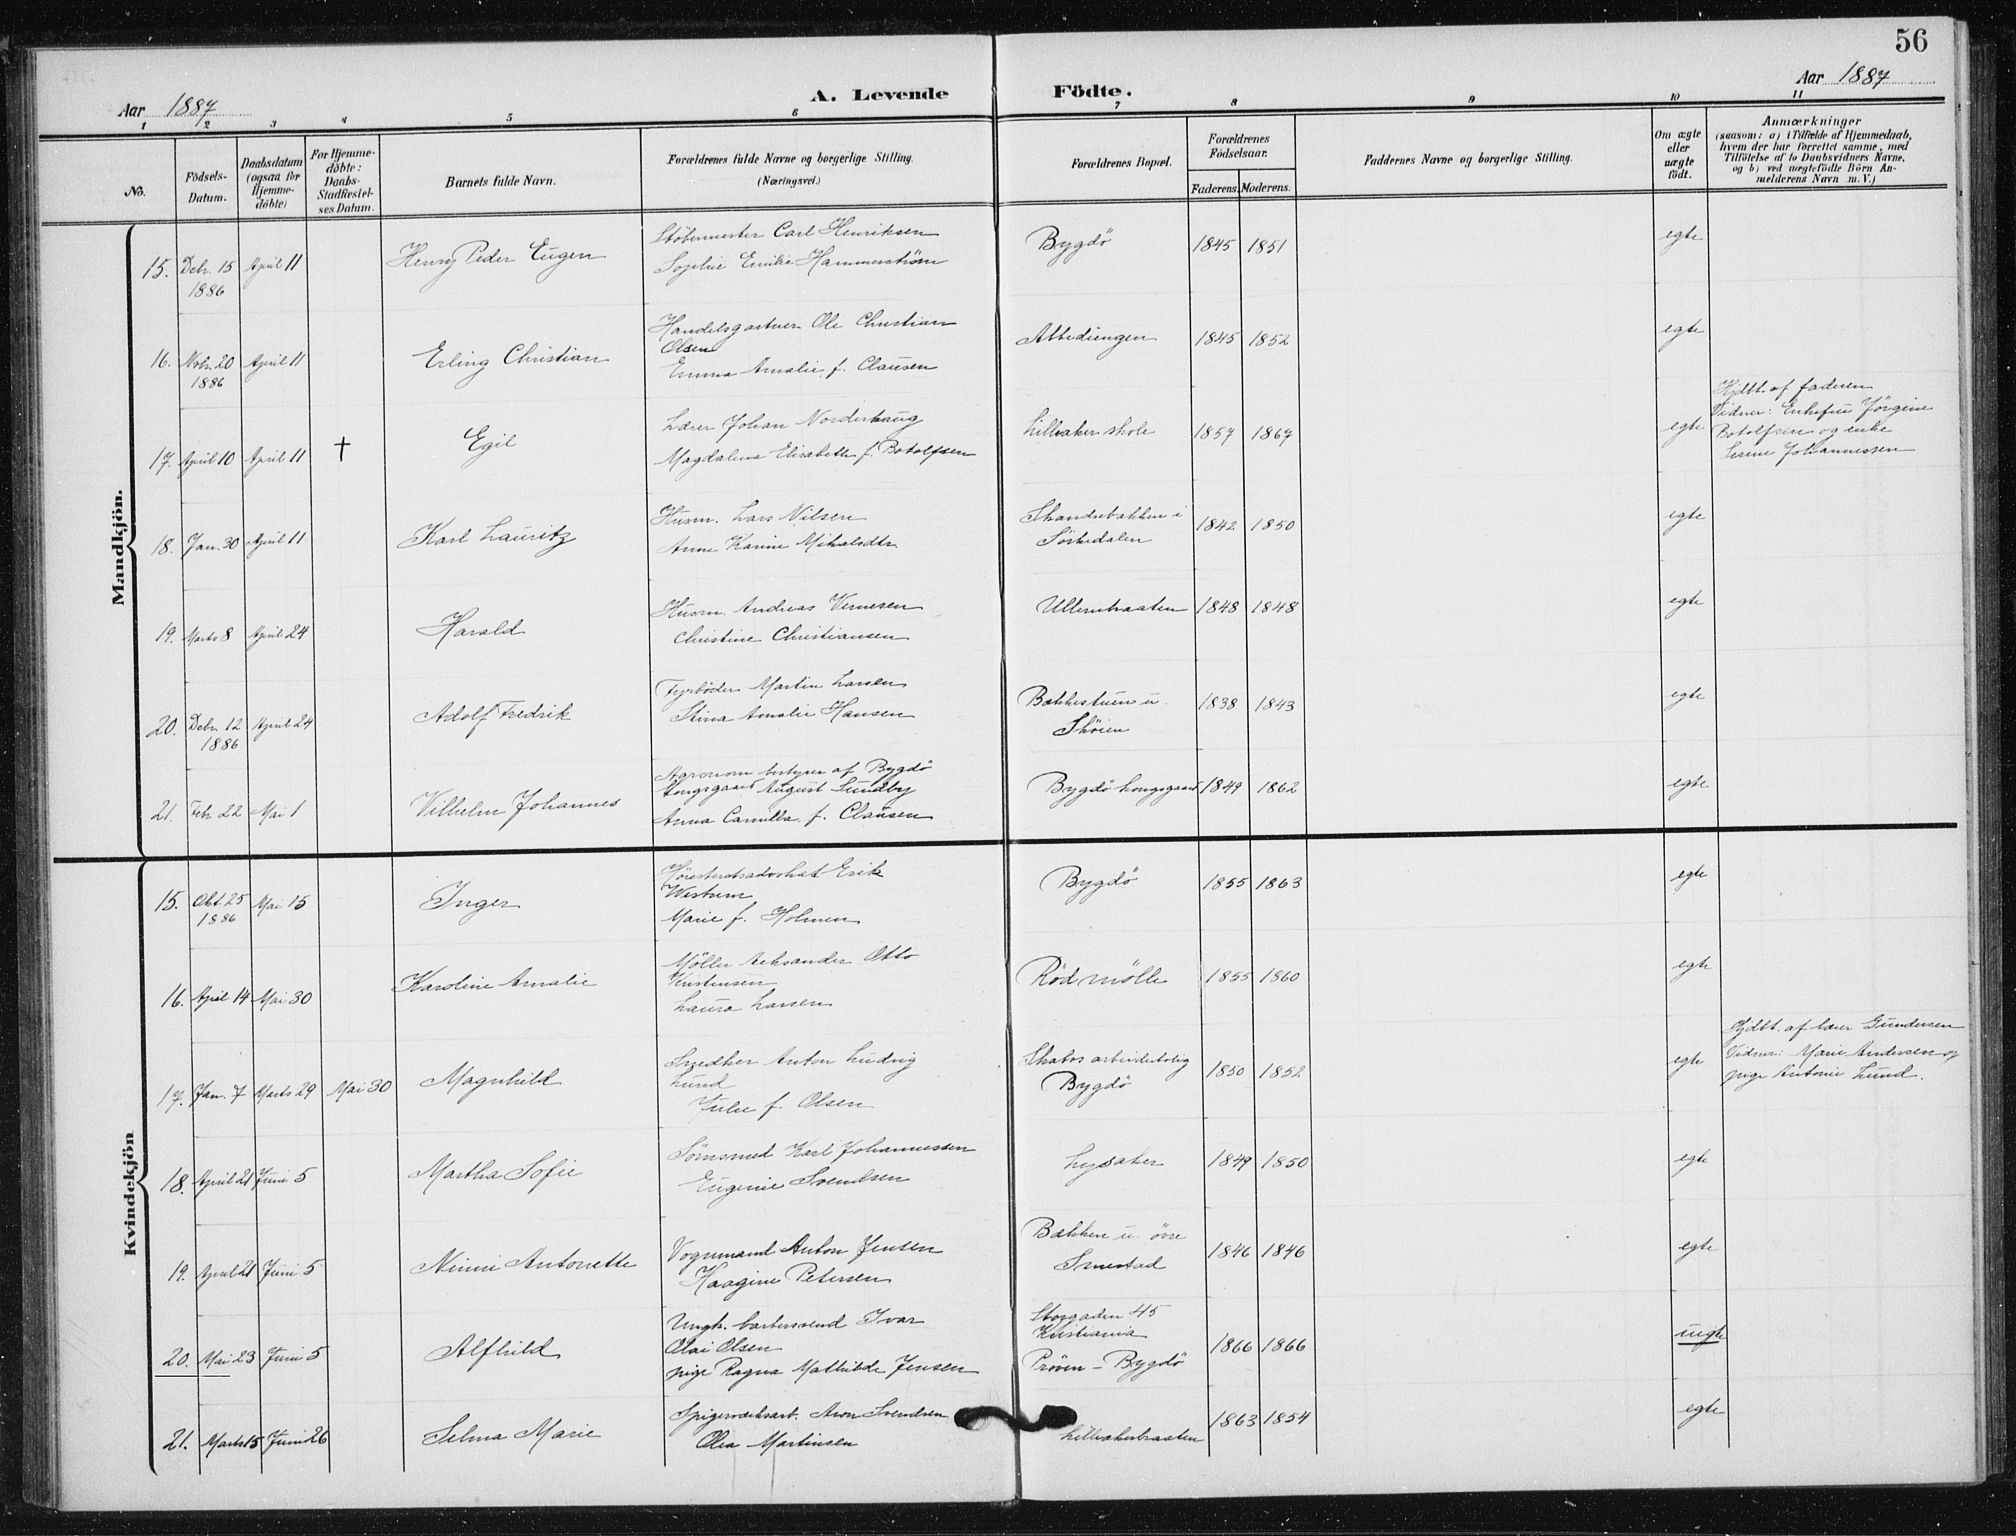 56
Aar 1887
A. Levende Födte.
Aar 1887
1 2 3 4 5 6 7 8 9 10 11
No.
Födsels-Datum.
Daabsdatum (ogsaa for Hjemme-döbte)
For Hjemme-döbte: Daabs-Stadfæstel-ses Datum.
Barnets fulde Navn.
Forældrenes fulde Navne og borgerlige Stilling. (Næringsvei.)
Forældrenes Bopæl.
Forældrenes Födselsaar.
Faderens. Moderens.
Faddernes Navne og borgerlige Stilling.
Om ægte eller uægte födt.
Anmærkninger
(saasom: a) i Tilfælde af Hjemmedaab,
hvem der har forrettet samme, med
Tilföielse af to Daabsvidners Navne,
og b) ved uægtefödte Börn An-
melderens Navn m. V.)
Mandkjön.
15. Debr. 15 1886 April 11 Henry Peder Eugen
Støbermester Carl Henriksen
Sophie Emilie Hammerstrøm
Bygdö 1845 1851 egte
16. Nobr. 20 1886 April 11 Erling Christian
Handelsgartner Ole Christian
Olsen
Emma Amalie f. Clausen
Abbediengen 1845 1852 egte
17. April 10 April 11 † Egil
Lærer Johan Norderhaug
Magdalena Elisabeth f. Botolfsen
Lilleaker skole 1857 1867 egte
Hjdbt. af faderen
Vidner: Enkefru Jörgine
Botolfsen og enke
Serine Johannessen
18. Jan. 30 April 11 Karl Lauritz
Husm. Lars Nilsen
Anne Karine Mikalsdtr
Skandsebakken i
Sörkedalen
1842 1850 egte
19. Marts 8 April 24 Harald
Husm. Andreas Vernesen
Christine Christiansen
Ullernbraaten 1848 1848 egte
20. Debr. 12 1886 April 24 Adolf Fredrik
Fyrbøder Martin Larsen
Stina Amalie Hansen
Bækkestuen u.
Skøien
1838 1843 egte
21. Febr. 22 Mai 1 Vilhelm Johannes
Agronom bestyrer af Bygdö
Kongsgaard August Sundby
Anna Camilla f. Clausen
Bygdö kongsgaard 1849 1862 egte
Kvindekjön
15. Okt. 25 1886 Mai 15 Inger
Høiesteretsadvokat Erik
Marie f. Holmen
Bygdö 1855 1863 egte
16. April 14 Mai 30 Karoline Amalie
Möller Aleksander Otto
Kristensen
Laura Larsen
Rød mölle 1855 1860 egte
17. Jan. 7 Marts 29 Mai 30 Magnhild
Snedker Anton Ludvig
Lund
Julie f. Olsen
Skabos arbeiderbolig
Bygdö
1850 1852 egte
Hjdbt. af lærer Gundersen
Vidner: Marie Andersen og
pige Antonie Lund.
18. April 21 Juni 5 Martha Sofie
Sømsmed Karl Johannessen
Eugenie Svendsen
Lysaker 1849 1850 egte
19. April 21 Juni 5 Ninni Antonette
Vognmand Anton Jensen
Haagine Petersen
Bækken u. øvre
Smestad
1846 1846 egte
20. Mai 23 Juni 5 Alfhild
Ungk. barbersvend Ivar
Olai Olsen
pige Ragna Mathilde Jensen
Storgaden 45
Kristiania
Prøven - Bygdö
1866 1866 uegte
21. Marts 15 Juni 26 Selma Marie
Spigerverksarb. Aron Svendsen
Olea Martinsen
Lilleakerbraaten 1863 1854 egte